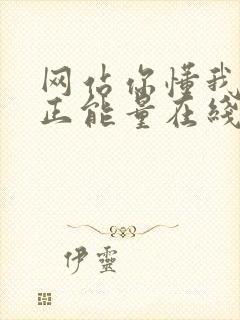 网站你懂我
正能量在线
伊靈